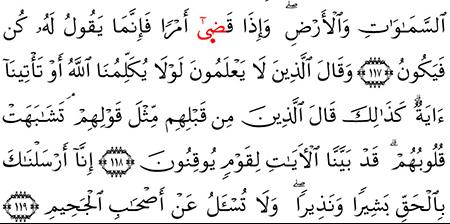 السَّمَٰوَٰتِ وَالْأَرْضِ ۖ وَإِذَا قَضَىٰٓ أَمْرًا فَإِنَّمَا يَقُولُ لَهُۥ كُن
فَيَكُونُ ﴿١١٧﴾ وَقَالَ الَّذِينَ لَا يَعْلَمُونَ لَوْلَا يُكَلِّمُنَا اللَّهُ أَوْ تَأْتِينَآ
ءَايَةٌ ۗ كَذَٰلِكَ قَالَ الَّذِينَ مِن قَبْلِهِم مِّثْلَ قَوْلِهِمْ ۘ تَشَٰبَهَتْ
قُلُوبُهُمْ ۗ قَدْ بَيَّنَّا الْءَايَٰتِ لِقَوْمٍ يُوقِنُونَ ﴿١١٨﴾ إِنَّآ أَرْسَلْنَٰكَ
بِالْحَقِّ بَشِيرًا وَنَذِيرًا ۖ وَلَا تُسْـَٔلُ عَنْ أَصْحَٰبِ الْجَحِيمِ ﴿١١٩﴾